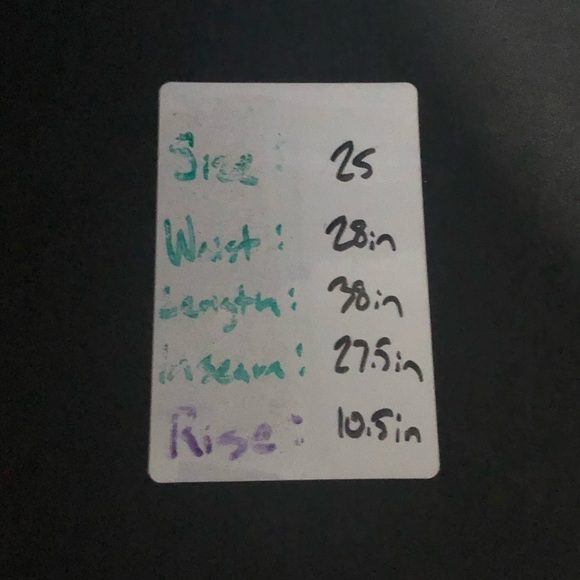 Size: 25
Waist: 28in
Length: 38in
Inseam: 27.5in
Rise: 10.5in